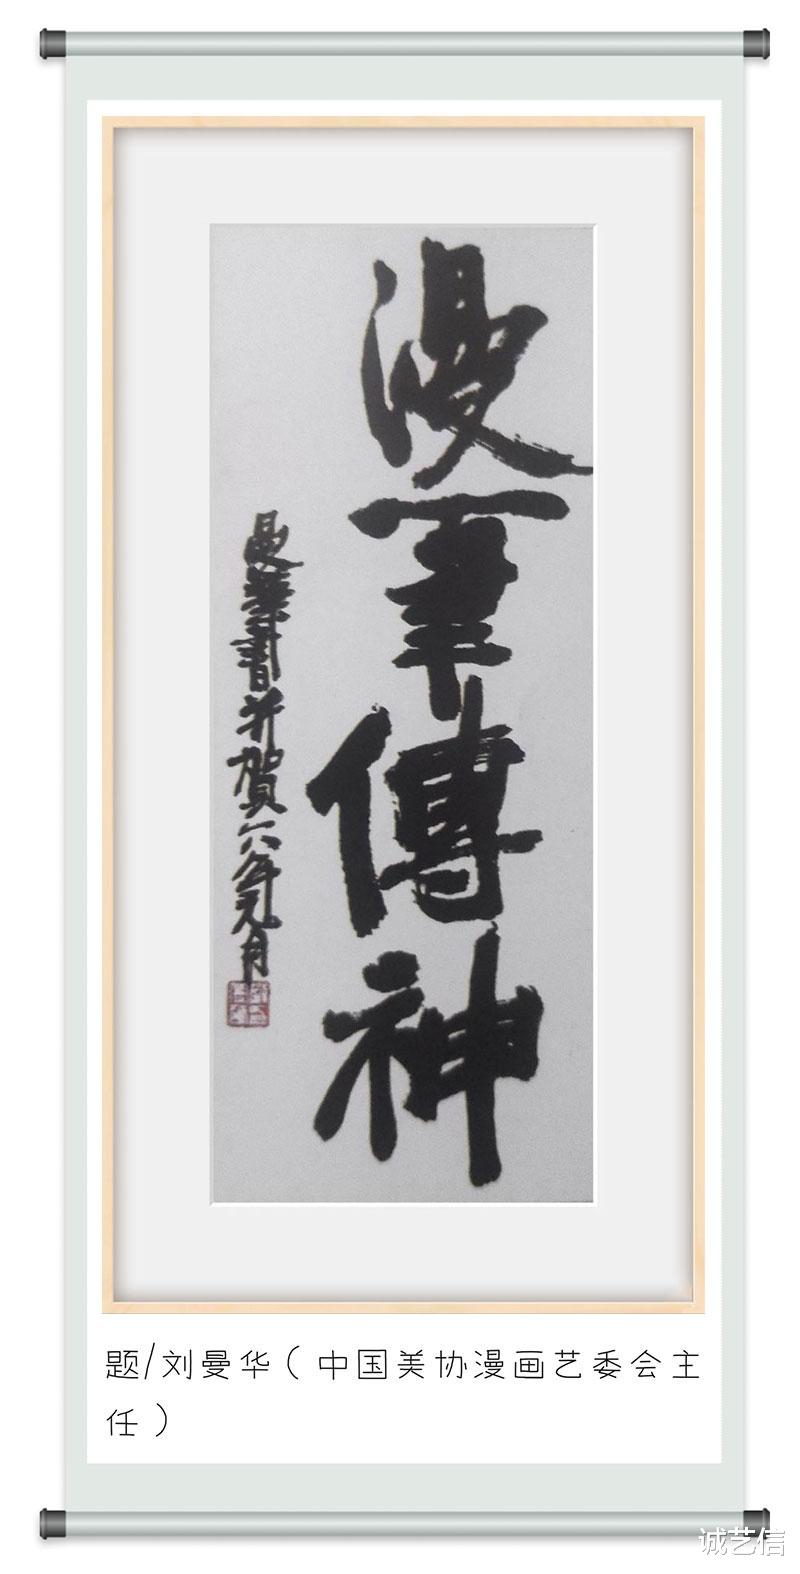 漫筆傳神
曼華書并賀六年元月
题/刘曼华（中国美协漫画艺委会主
任）
诚艺信